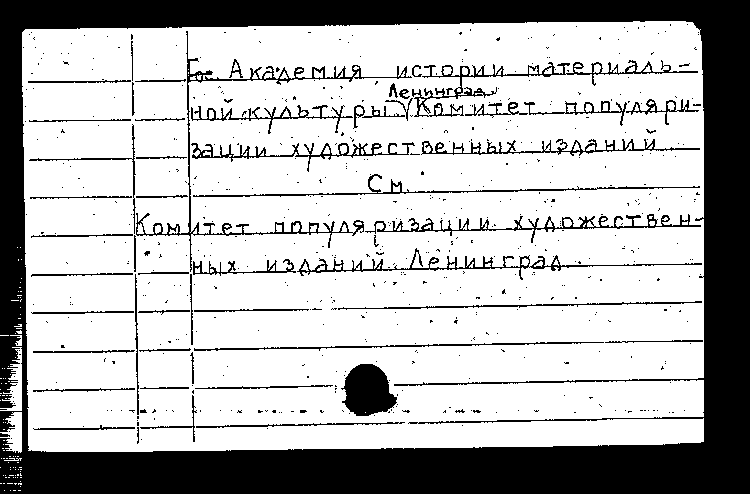 Гос. Академия истории материаль-
Ленинград
ной культуры. Комитет популяри-
зации художественных изданий
См.
Комитет популяризации художествен-
ных изданий. Ленинград.